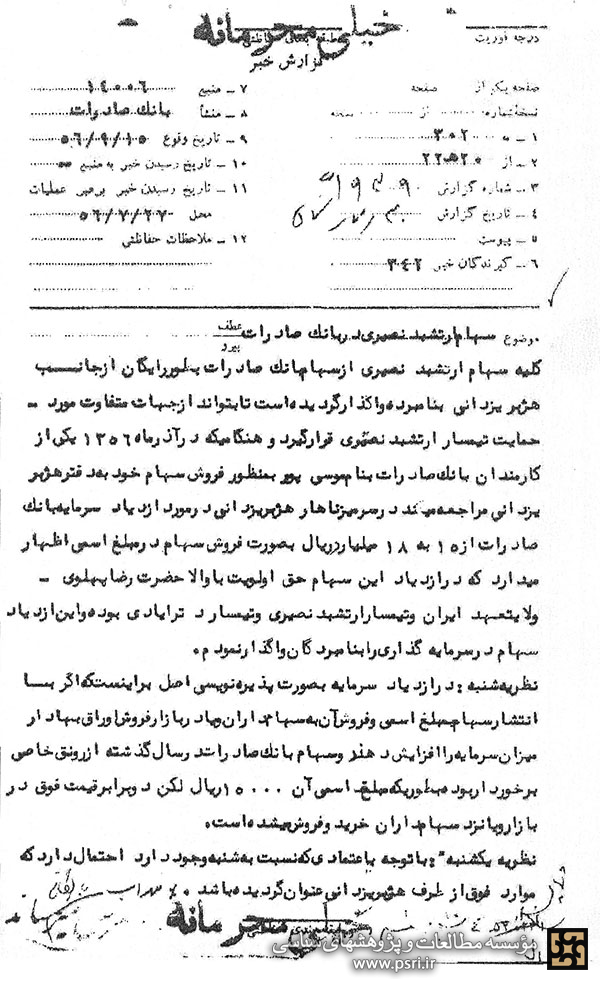 خیلی محرمانه
درجه فوریت
طبقه بندی حفاظتی
گزارش خبر
صفحه یک از صفحه
نسخه شماره از نسخه
۱ ـ به ۳۰۲
۲ ـ از ۲۲ه۲۰
۳ ـ شماره گزارش
۴ ـ تاریخ گزارش
۵ ـ پیوست
۶ ـ گیرندگان خبر ۳۴۲
۷ ـ منبع ۱۴۰۰۶
۸ ـ منشأ بانک صادرات
۹ ـ تاریخ وقوع ۵۶/۹/۱۵
۱۰ ـ تاریخ رسیدن خبر به منبع
۱۱ ـ تاریخ رسیدن خبر برهبر عملیات
محل ۵۶/۷/۲۷
۱۲ ـ ملاحظات حفاظتی
موضوع سهام ارتشبد نصیری در بانک صادرات عطف
پیرو
کلیه سهام ارتشبد نصیری از سهام بانک صادرات بطور رایگان از جانب
هژبر یزدانی بنامبرده واگذار گردیده است تا بتواند از جهات متفاوت مورد ـ
حمایت تیمسار ارتشبد نصیری قرار گیرد و هنگامیکه در آذر ماه ۱۳۵۶ یکی از
کارمندان بانک صادرات بنام موسی پور بمنظور فروش سهام خود بدفتر هژبر
یزدانی مراجعه میکند در سر میز ناهار هژبر یزدانی در مورد ازدیاد سرمایه بانک
صادرات از ۱۵ به ۱۸ میلیارد ریال بصورت فروش سهام در مبلغ اسمی اظهار
میدارد که در ازدیاد این سهام حق اولویت با والا حضرت رضا پهلوی ـ
ولایتعهد ایران و تیمسار ارتشبد نصیری و تیمسار د ترایادی بوده و این ازدیاد
سهام در سرمایه گذاری را بنامبردگان واگذار نمودم.
نظریه شنبه : در ازدیاد سرمایه بصورت پذیره نویسی اصل بر اینستکه اگر با
انتشار سهام بمبلغ اسمی و فروش آن به سهامداران و یا در بازار فروش اوراق بهادار
میزان سرمایه را افزایش دهند و سهام بانک صادرات در سال گذشته از رونق خاصی
برخوردار بوده بطوریکه مبلغ اسمی آن ۱۰۰۰۰ ریال لکن در برابر قیمت فوق در
بازار و یا نزد سهام داران خرید و فروش میشده است.
نظریه یکشنبه : با توجه باعتمادی که نسبت به شنبه وجود دارد احتمال دارد که
موارد فوق از طرف هژبر یزدانی عنوان گردیده باشد
خیلی محرمانه
موسسه مطالعات و پژوهشهای سیاسی
www.psri.ir